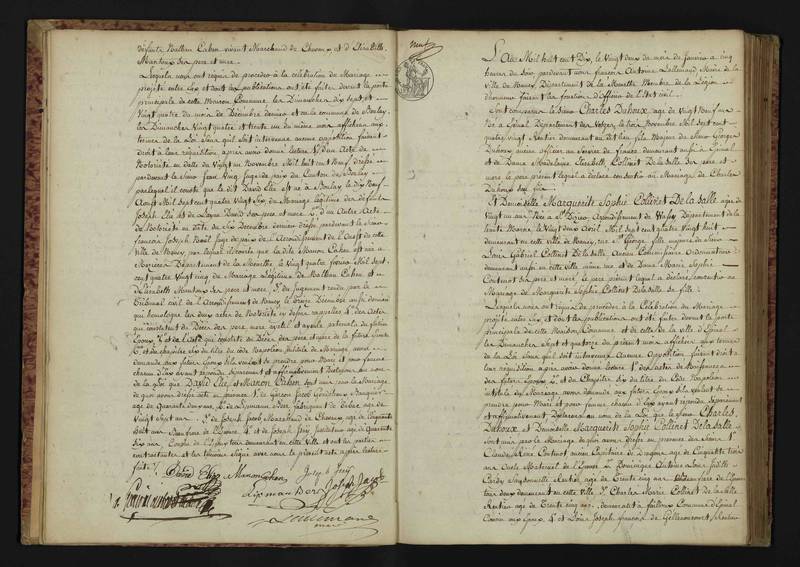 défunts Nathan Cahen vivant Marchand de Chevaux et d'Elisabeth
Mantoux ses père et mère.
Lesquels nous ont requis de procéder à la célébration du Mariage
projeté entre eux et dont les publications ont été faites devant la porte
principale de cette Maison Commune, les Dimanches dix sept et
Vingt quatre du mois de Décembre dernier et en la commune de Boulay,
les Dimanches Vingt quatre et trente un du même mois affichées aux
termes de la Loi sans qu'il soit intervenu aucune opposition faisant
droit à leur réquisition après avoir donné lecture 1° d'un Acte de
Notoriété en date du Vingt un Novembre Mil huit cent Neuf dressé
pardevant le Sieur Juge de paix du Canton de Boulay
par lequel il conste que le dit David Elie est né à Boulay le dix Neuf
Août Mil sept cent quatre Vingt Six du Mariage légitime des défunts
Joseph Elie et de David ses père et mère 2° d'un autre Acte
de Notoriété en date du Six Décembre dernier dressé pardevant le Sieur
françois Joseph Juge de paix de l'Arrondissement de l'Ouest de cette
Ville de Nancy par lequel il conste que la dite Manon Cahen est née à
Département de la Meurthe le Vingt quatre février Mil Sept
cent quatre Vingt cinq du Mariage Légitime de Nathan Cahen et
d'Elisabeth Mantoux ses père et mère 3° du Jugement rendu par le
Tribunal civil de l'Arrondissement de Nancy le Treize Décembre aussi dernier
qui homologue les deux actes de Notoriété ci dessus rappelés 4° des Actes
qui constatent du Décès des père mère ayeul et ayeule paternels du futur
Epoux 5° de l'acte qui constate du Décès des père et ayeux de la future Epouse
6° et du chapitre six du titre du code Napoléon intitulé du Mariage avons
demandé aux futurs Epoux s'ils veulent se prendre pour Mari et pour femme
chacun d'eux ayant répondu séparément et affirmativement Déclarons au nom
de la Loi que David Elie, et Manon Cahen sont unis par le Mariage
de quoi avons dressé acte en présence 1° de Jacob
agé de quarante deux ans, 2° de Lipmann Beer fabriquant de tabac agé de
Vingt Sept ans, 3° de Joseph Jacob Marchand de Chevaux agé de Cinquante
huit ans de l'Epouse, 4° et de Joseph Instituteur agé de quarante
Six ans, Cousin de l'Epoux tous demeurant en cette Ville et ont les parties
contractantes et les témoins signé avec nous le présent acte après lecture
faite.
David Elie Manon Cahen
Lipman Beer Joseph Jacob
Lallemand
maire
L'An Mil huit cent Dix, le Vingt deux du mois de Janvier à cinq
heures du soir pardevant nous françois Antoine Lallemand Maire de la
Ville de Nancy, Département de la Meurthe Membre de la Légion
d'honneur faisant les fonctions d'Officier de l'état civil.
Sont comparus le Sieur Charles Duhoux, agé de Vingt Neuf ans
né à Epinal, Département des Vosges, le huit Novembre Mil Sept cent
quatre vingt, Rentier demeurant au dit lieu fils Majeur du Sieur Georges
Duhoux ancien officier au Service de france demeurant aussi à Epinal
et de Dame Madelaine Elisabeth Collinet De la Salle ses père et
mère, le père présent lequel a déclaré consentir au Mariage de Charles
Duhoux son fils.
Et Demoiselle Marguerite Sophie Collinet De la Salle agée de
Vingt un ans Née à Arrondissement de Vassy Département de la
haute Marne, le Vingt deux Avril Mil sept cent quatre Vingt huit
demeurant en cette Ville de Nancy, rue St George, fille mineure du Sieur
Louis Gabriel Collinet De la Salle, Ancien Commissaire Ordonnateur
demeurant aussi en cette Ville même rue et de Dame Marie Sophie
ses père et mère, le père présent lequel a déclaré consentir au
Mariage de Marguerite Sophie Collinet De la Salle sa fille.
Lesquels nous ont requis de procéder à la Célébration du Mariage
projeté entre eux, et dont les publications ont été faites devant la porte
principale de cette Maison Commune et de celle de la Ville d'Epinal
les Dimanches Sept et quatorze du présent mois affichées aux termes
de la Loi Sans qu'il soit intervenu Aucune Opposition faisant droit à
leur réquisition après avoir donné lecture 1° des actes de Naissances
des futurs Epoux, 2° et du Chapitre Six du titre du Code Napoléon
intitulé du Mariage avons demandé aux futurs Epoux s'ils veulent se
prendre pour Mari et pour femme chacun d'eux ayant répondu séparément
et affirmativement, Déclarons au nom de la Loi que le Sieur Charles
Duhoux et Demoiselle Marguerite Sophie Collinet De la Salle
sont unis par le Mariage de quoi avons dressé en présence des Sieurs 1°
Claude Rémi Collinet ancien Capitaine de Dragons agé de Cinquante trois
ans Oncle Maternel de l'Epoux 2° Antoine Louis
agé de Trente cinq ans,
tous deux demeurant en cette Ville 3° Charles Marie Collinet De la Salle
Rentier agé de Trente cinq ans, demeurant à Commune d'Epinal
Cousin aux Epoux, 4° et Louis Joseph françois de Gellenoncourt,